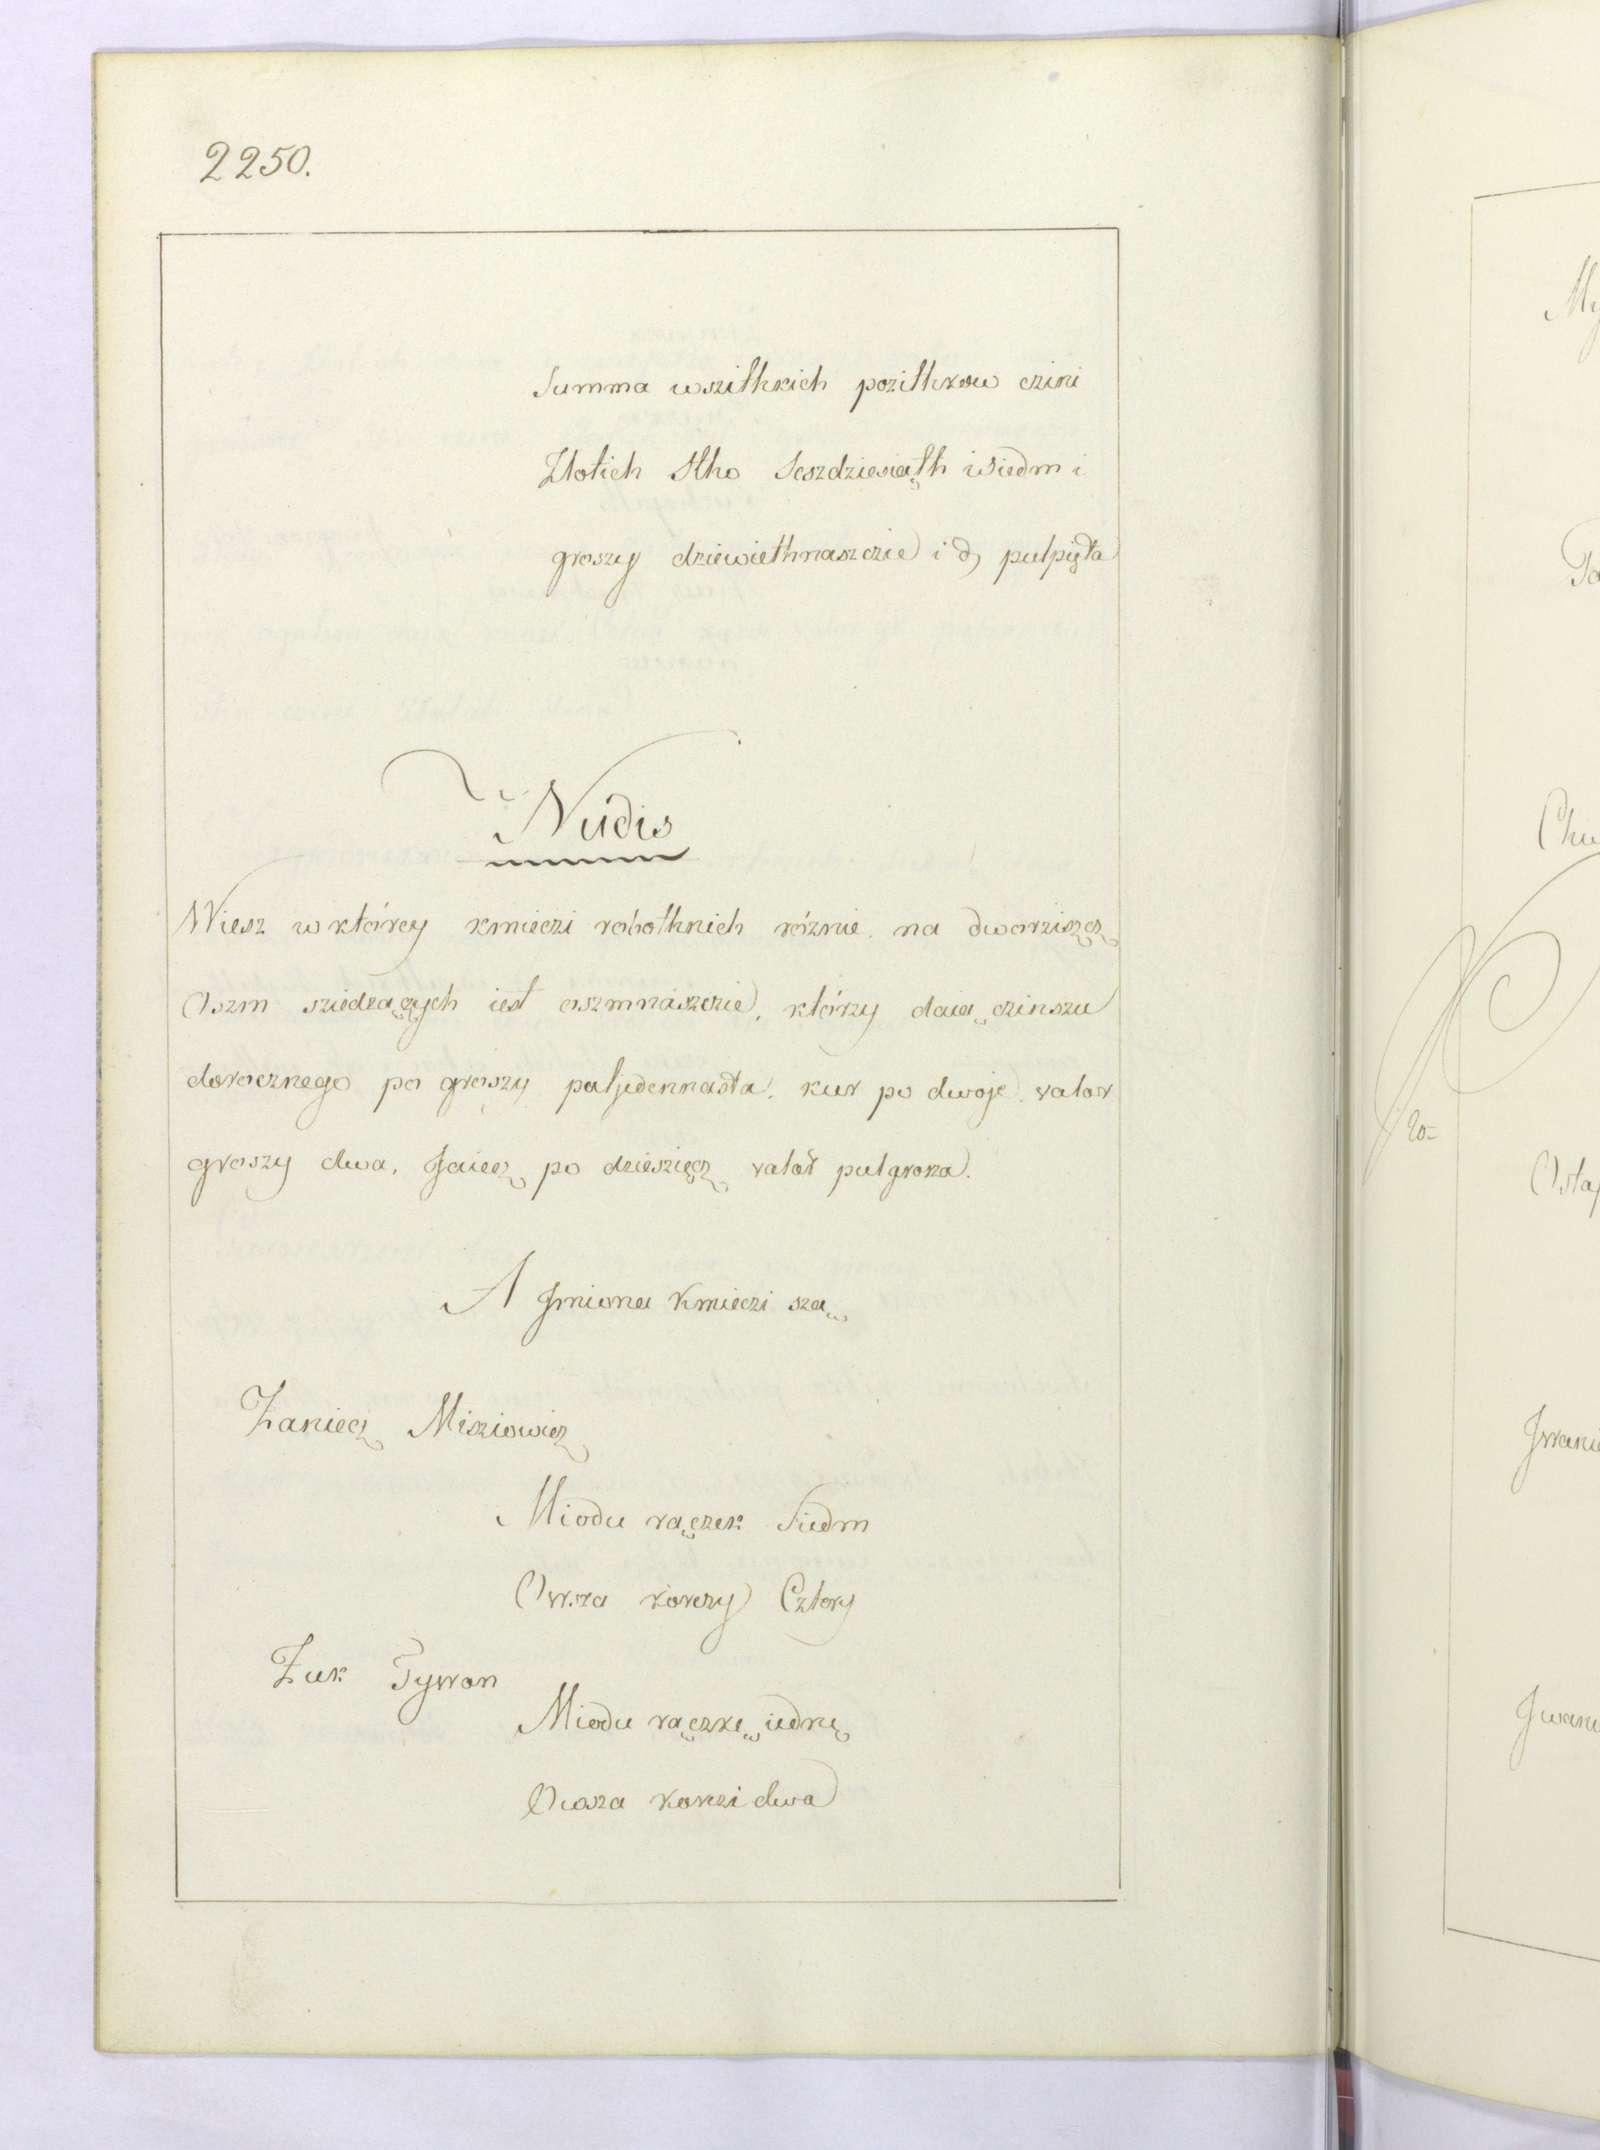 2250.
Summa wszithkich pozithkow czini
Złotich Stho Seszdziesiąth i Siedm i
groszy dziewiethnaszczie i d, pułpięta
Nudis
Wiesz w którey kmieczi robothnich różnie na dworziszcz
Oszm sziedzączych iest oszmnaszczie, którzy daią czinszu
dorocznego po groszy poljedennasta, kur po dwoje valor
groszy dwa, Jaiecz po dziesziecz valor pulgrosza.
A Jmiona Kmieczi szą
Zaniecz Misziowicz
Miodu rączek Siedm
Owsza korczy Cztery
Żuk Tywon
Miodu rączkę iednę
Owsza korczi dwa
My
Chu
Osta
Jwani
Jwani